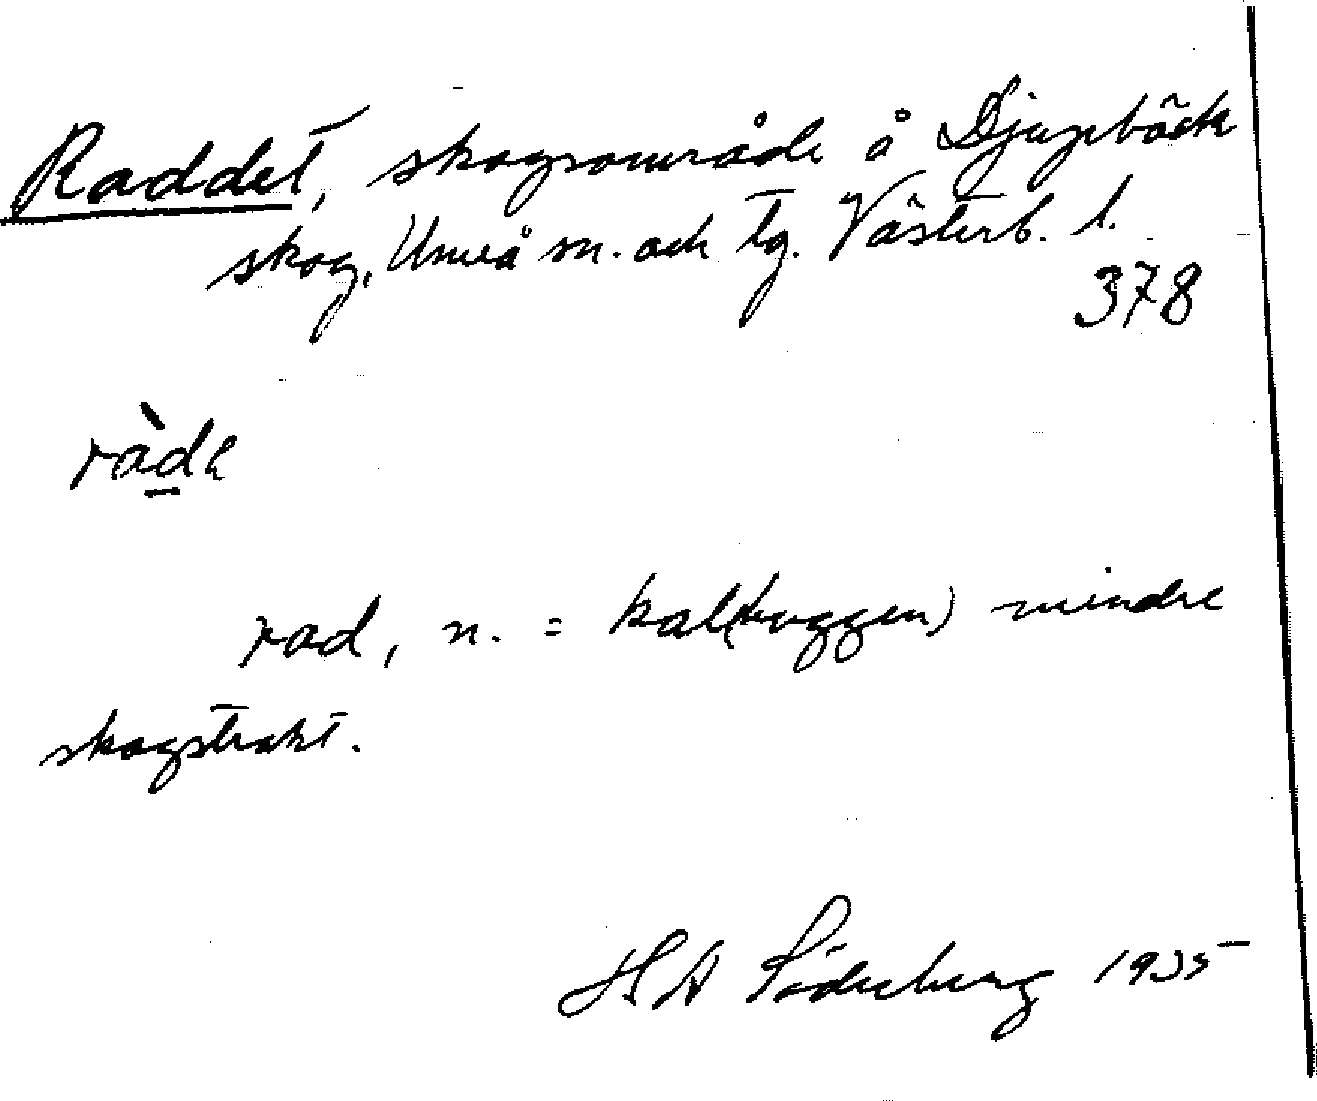 Raddet, skogsområde å Djupbäck
skog, Umeå sn. och tg. Västerb. l.
378
ràdə
rad, n. = kal(huggen) mindre
skogstrakt.
H A Söderberg 1935